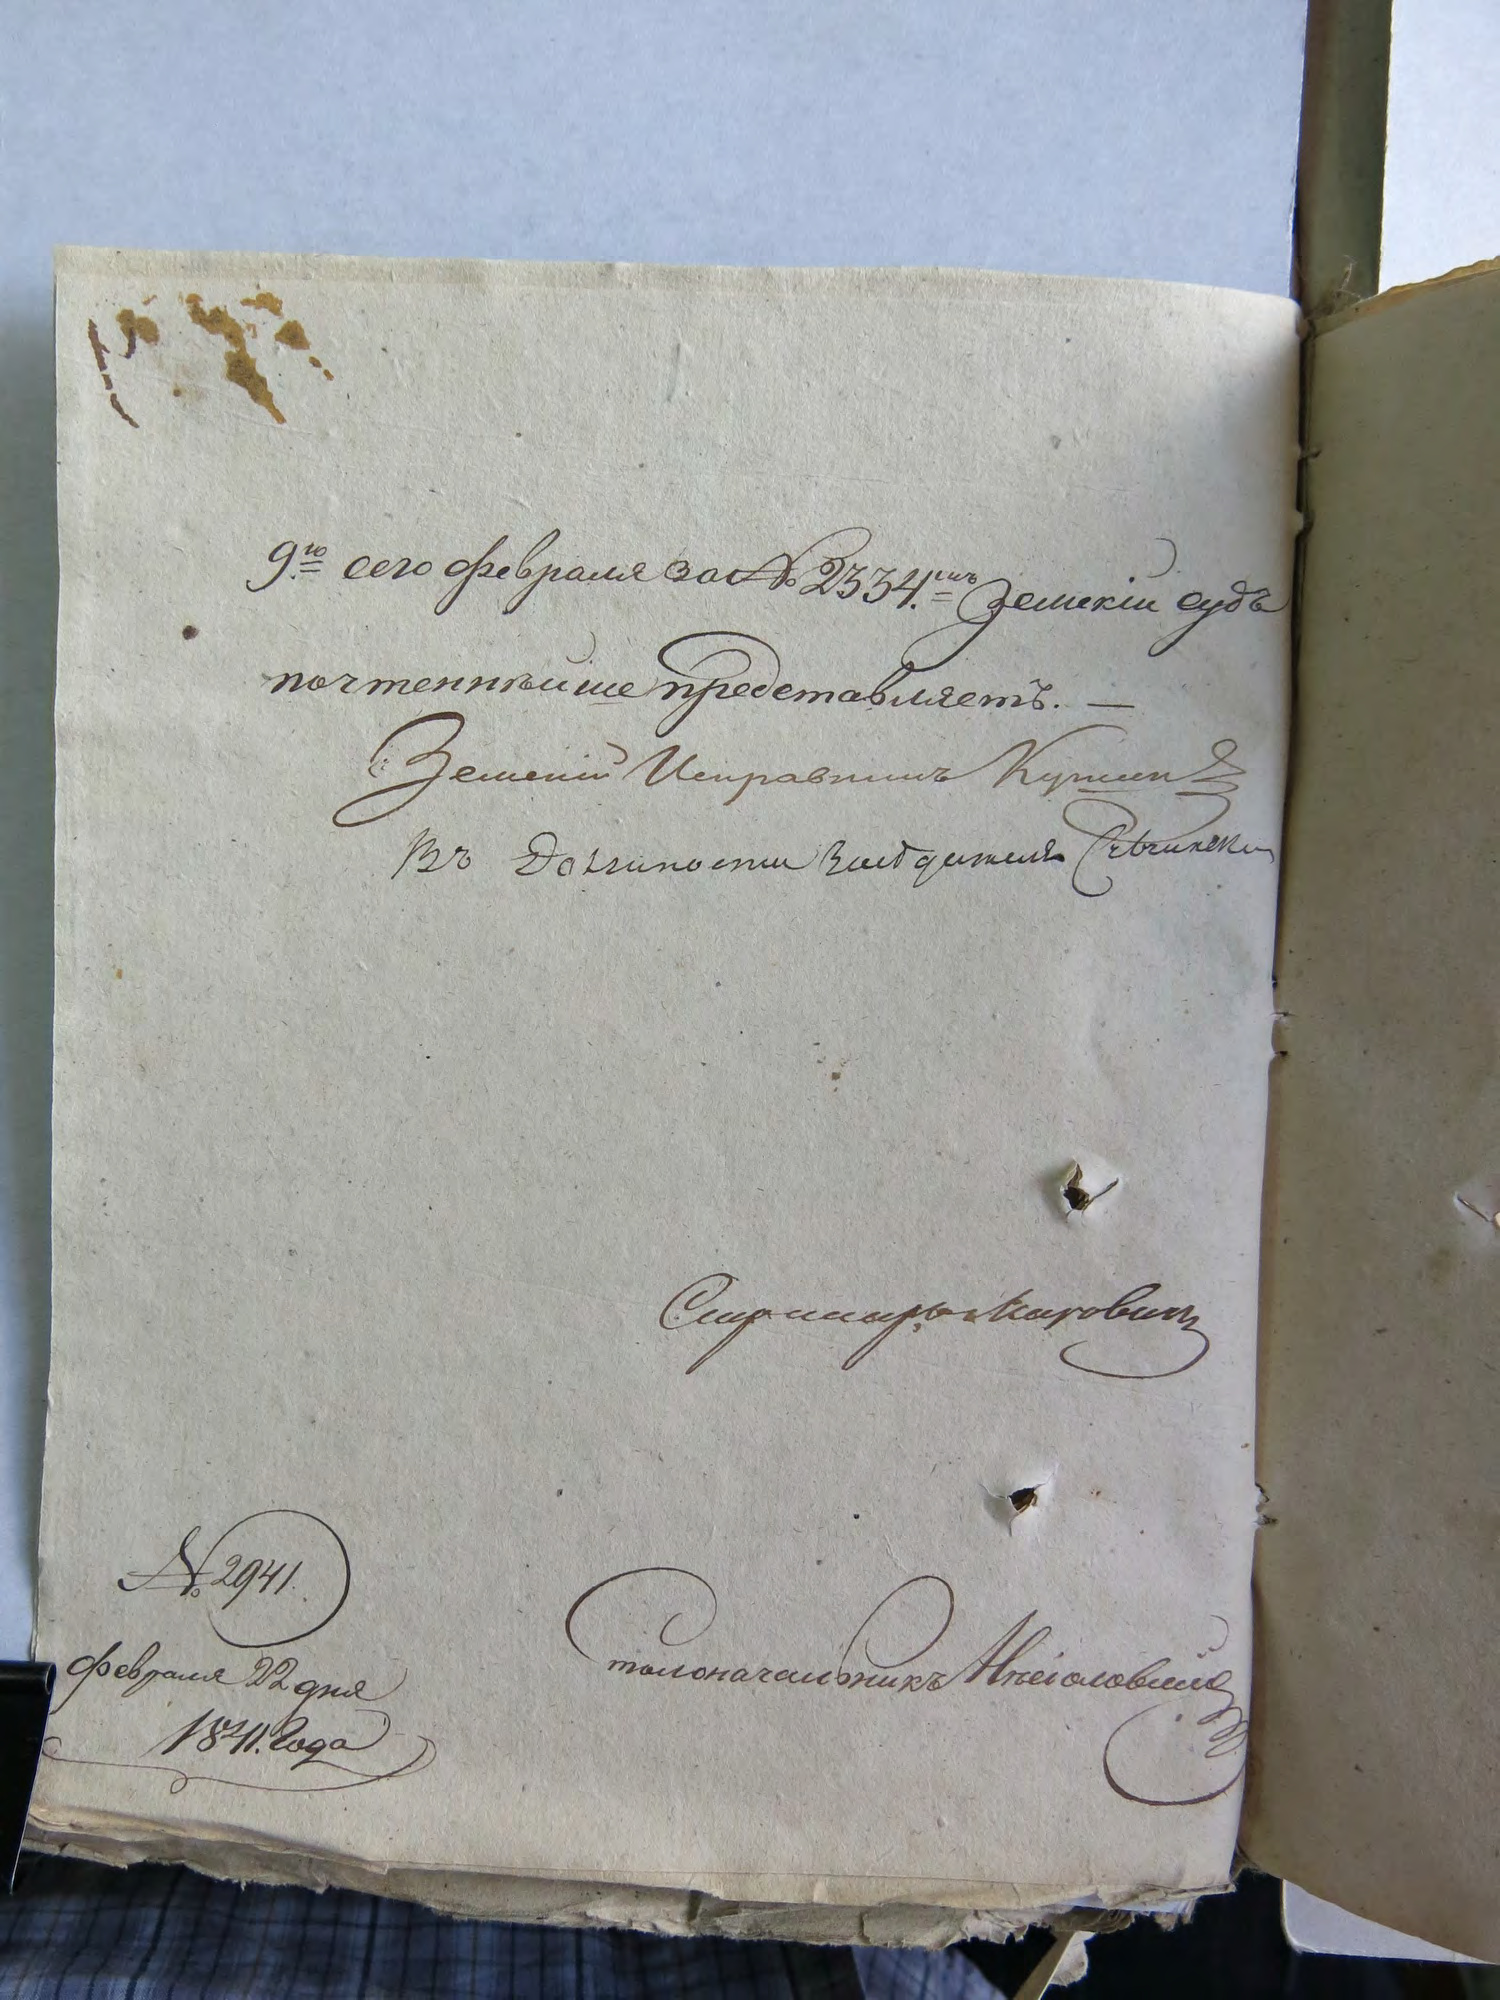 9го сего февраля за № 2334.мъ Земскій судъ
почтеннѣйше представляетъ. —
Земскій Исправникъ
Въ Должности Засѣдателя
Секретарь
№ 2941.
февраля 22 дня
1841. года
столоначальникъ